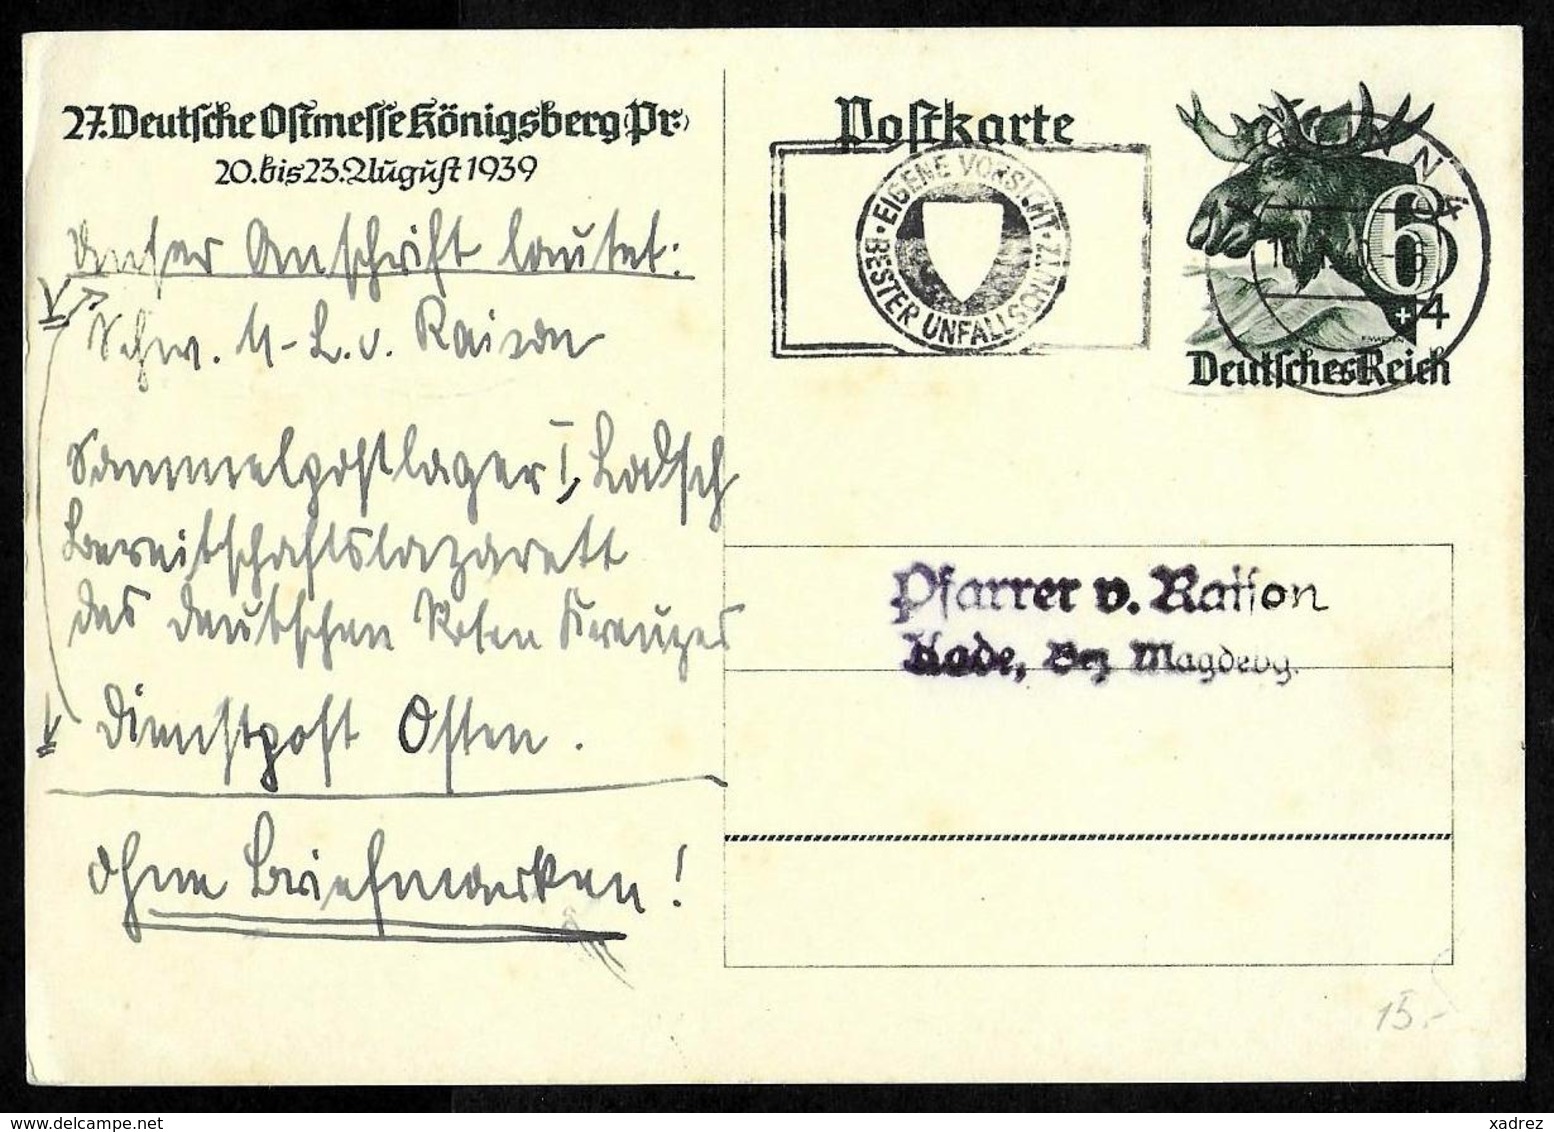 27. Deutsche Ostmesse Königsberg (Pr.)
20. bis 23. August 1939
Unser Anschrift lautet:
Schw. M-L. v.
Sammelpostlager I,
Bereitschaftslazarett
des Deutschen Roten Kreuzes
Dienstpost Osten.
ohne Briefmarken!
Postkarte
EIGENE VORSICHT
BESTER UNFALLSCHUTZ
6
+4
Deutsches Reich
Pfarrer v. Raison
Kade, Bez Magdebg.
15.-
xadrez